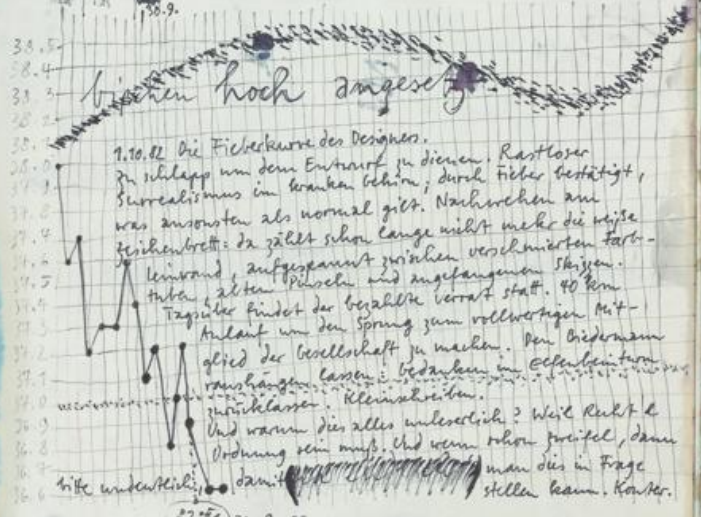 30.9.
38.5
38.4
38.3
38.2
38.1
38.0
bißchen hoch angesetzt
1.10.82 Die Fieberkurve des Designers.
Zu schlapp um dem Entwurf zu dienen. Rastloser
Surrealismus im kranken Gehirn; durch Fieber bestätigt,
was ansonsten als normal gilt. Nachwehen am
Zeichenbrett: da zählt schon lange nicht mehr die weiße
Leinwand, aufgespannt zwischen verschmierten Farb-
tuben, alten Pinseln und angefangenen Skizzen.
Tagsüber findet der bezahlte Verrat statt. 40 km
Anlauf um den Sprung zum vollwertigen Mit-
glied der Gesellschaft zu machen. Den Biedermann
raushängen lassen: Gedanken im Elfenbeinturm
zurücklassen. Kleinschreiben.
Und warum dies alles unleserlich? Weil Recht &
Ordnung sein muß. Und wenn schon Zweifel, dann
bitte undeutlich, damit man dies in Frage
stellen kann. Konter.
37.6
37.5
37.4
37.3
37.2
37.1
37.0
36.9
36.8
36.7
36.6